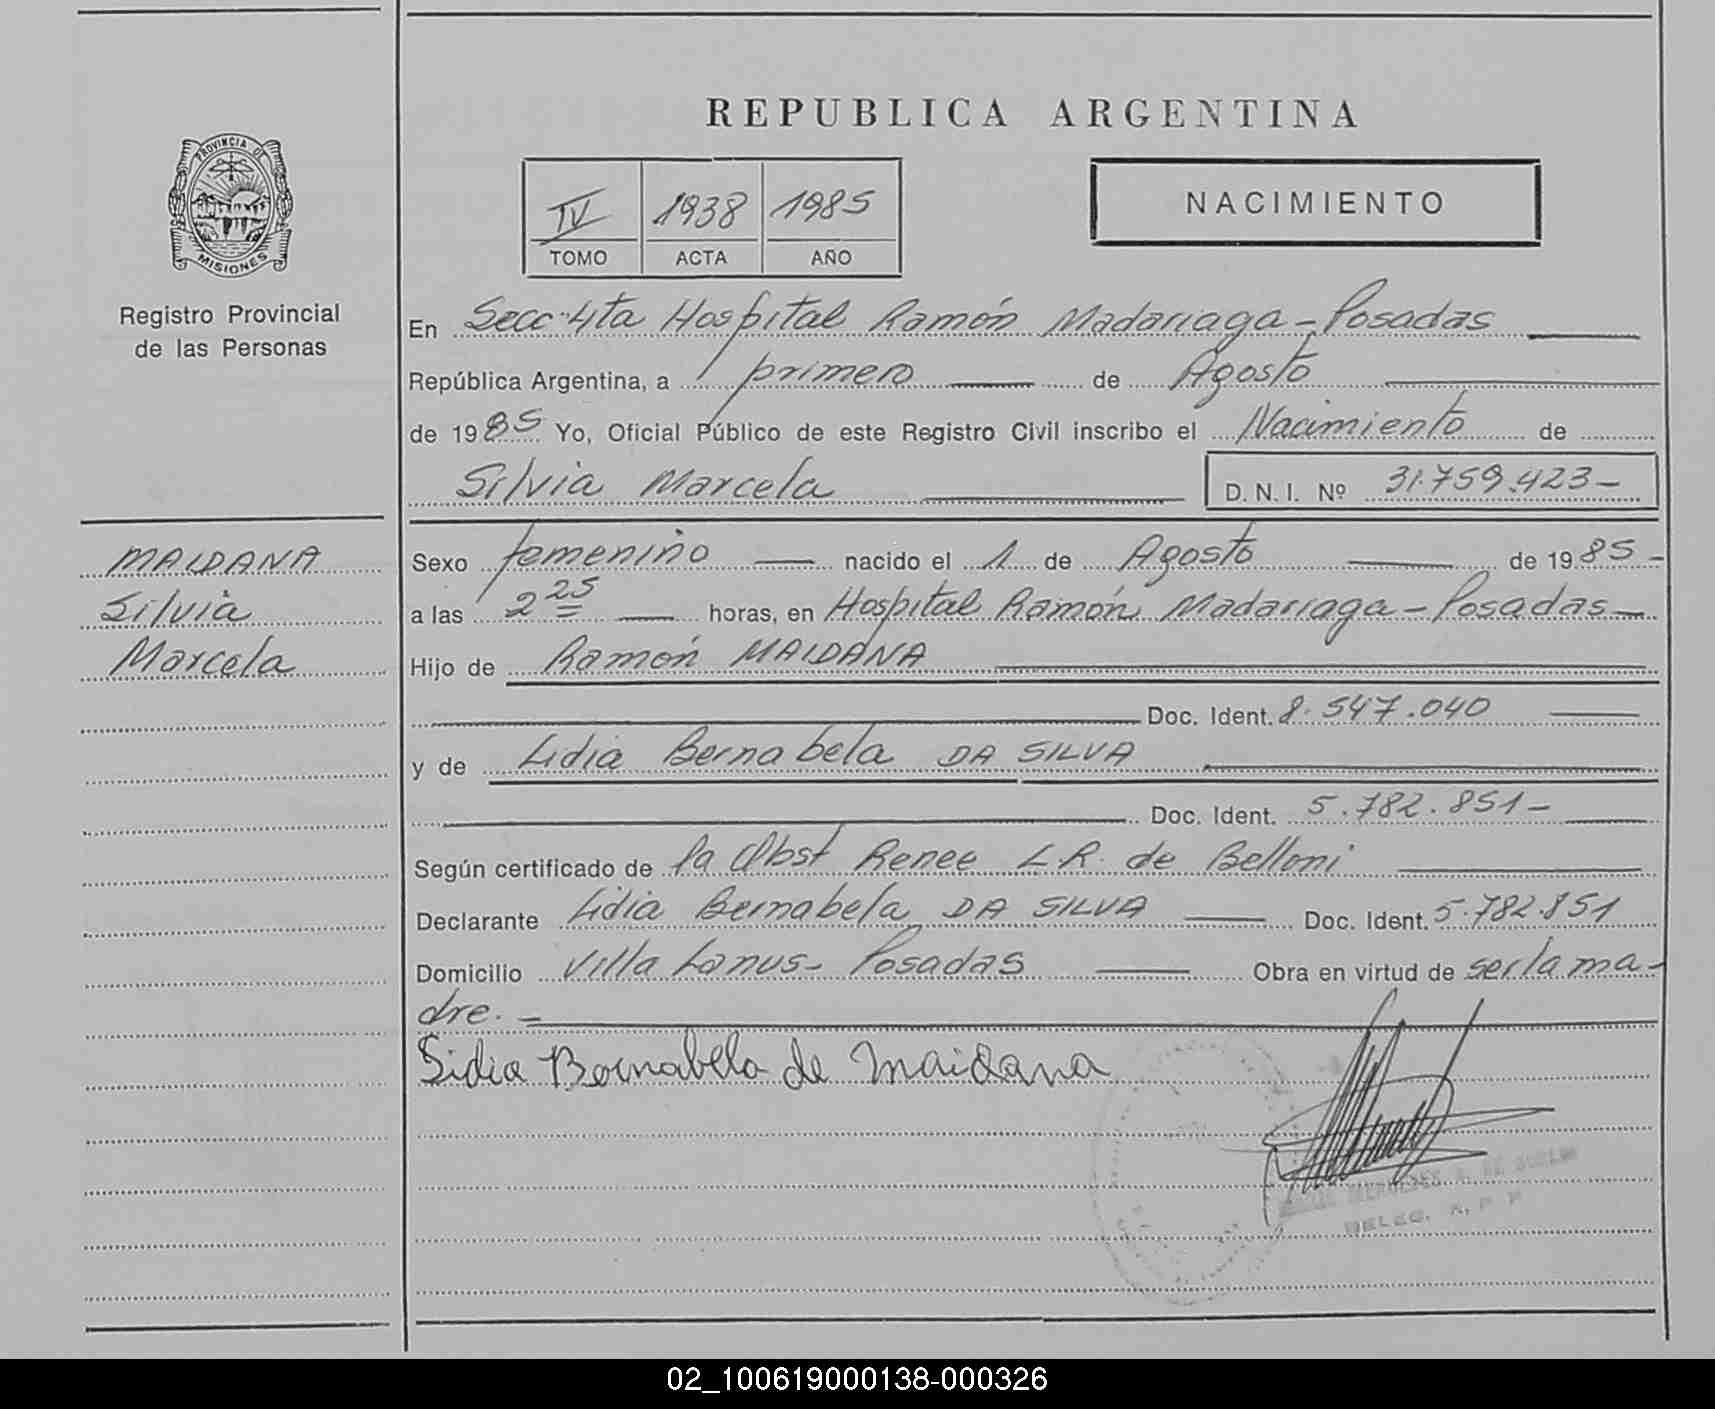 REPUBLICA ARGENTINA
PROVINCIA DE
MISIONES
Registro Provincial
de las Personas
IV 1938 1985
TOMO ACTA AÑO
NACIMIENTO
En Secc. 4ta Hospital Ramón Madariaga - Posadas
República Argentina, a primero de Agosto
de 1985 Yo, Oficial Público de este Registro Civil inscribo el Nacimiento de
Silvia Marcela D.N.I. Nº 31.759.423-
MAIDANA
Silvia
Marcela
Sexo femenino nacido el 1 de Agosto de 1985-
a las 2 25 horas, en Hospital Ramón Madariaga - Posadas-
Hijo de Ramón MAIDANA
Doc. Ident. 8.547.040
y de Lidia Bernabela DA SILVA
Doc. Ident. 5.782.851-
Según certificado de la Obst Renee L.R. de Belloni
Declarante Lidia Bernabela DA SILVA Doc. Ident. 5.782.851
Domicilio Villa Lanus- Posadas Obra en virtud de ser la ma-
dre. -
Lidia Bernabela de Maidana
DELEG. R. P. P.
02_100619000138-000326